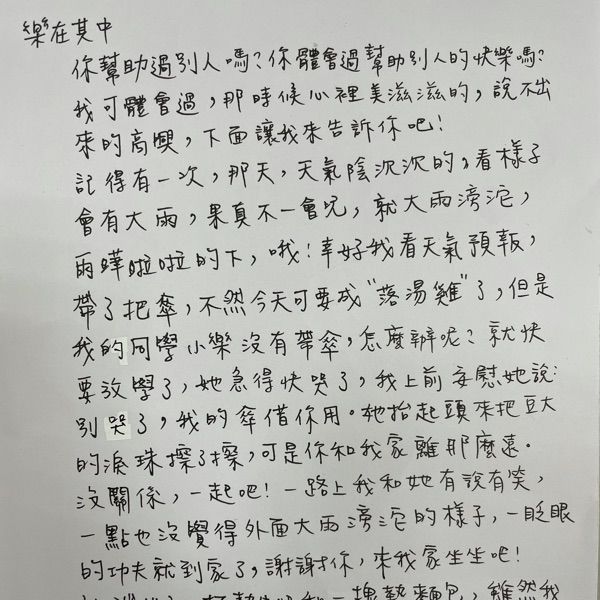 樂在其中
你幫助過別人嗎?你體會過幫助別人的快樂嗎?
我可體會過,那時候心裡美滋滋的,說不出
來的高興,下面讓我來告訴你吧!
記得有一次,那天,天氣陰沉沉的,看樣子
會有大雨,果真不一會兒,就大雨滂沱,
雨嘩啦啦的下,哦!幸好我看天氣預報,
帶了把傘,不然今天可要成"落湯雞"了,但是
我的同學小樂沒有帶傘,怎麼辦呢?就快
要放學了,她急得快哭了,我上前安慰她說:
別哭了,我的傘借你用。她抬起頭來把豆大
的淚珠擦了擦,可是你和我家離那麼遠.
沒關係,一起吧!一路上我和她有說有笑,
一點也沒覺得外面大雨滂沱的樣子,一眨眼
的功夫就到家了,謝謝你,來我家坐坐吧!
一塊熱麵包,雖然我